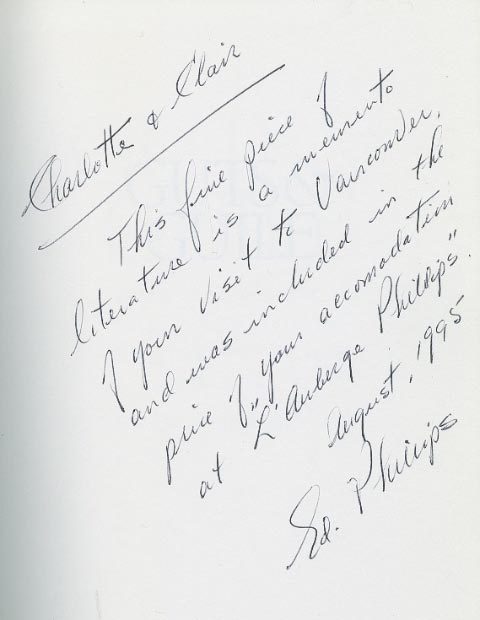 Charlotte & Clair
This fine piece of
literature is a memento
of your visit to Vancouver,
and was included in the
price of "your accomodation
at L'Auberge Phillips".
August, 1995
Ed. Phillips